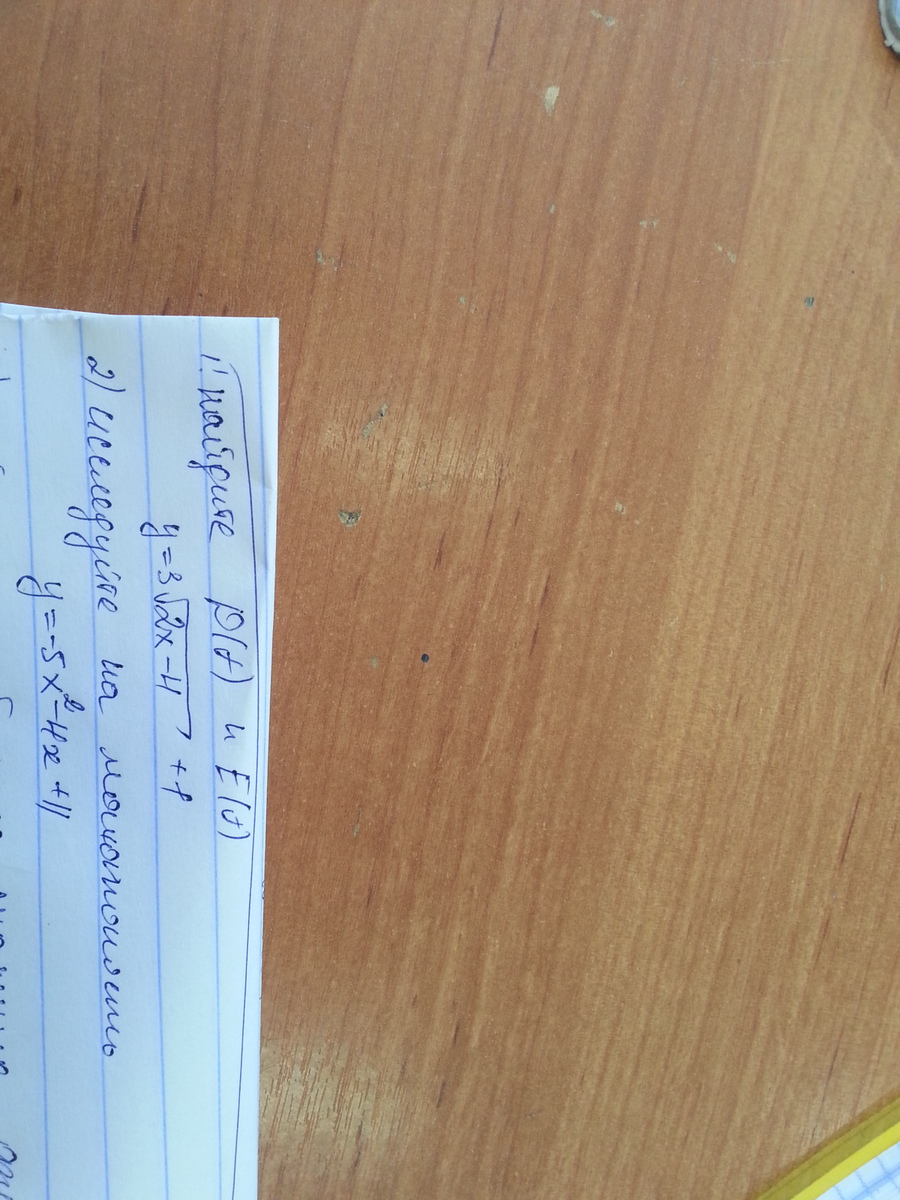 1) Найдите D(f) и E(f)
y=3√2x-4 +1
2) Исследуйте на монотонность
y=-5x²-4x+11